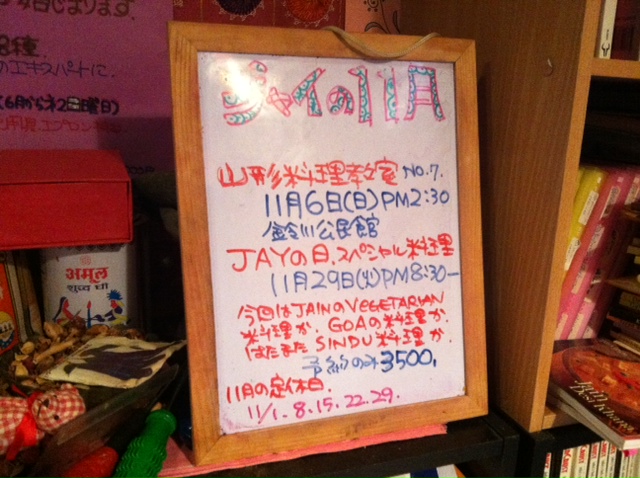 6から
日曜日)
8種.
のエキスパートに.
अमूल
शुद्ध घी
ジャイの11月
山形料理教室 NO.7.
11月6日(日)PM2:30
鈴川公民館
JAYの日.スペシャル料理
11月29日(火)PM8:30-
今回はJAINのVEGETARIAN
料理か. GOAの料理か.
はたまた SINDU料理 か.
予約のみ3500,
11月の定休日.
11/1.8.15.22.29.